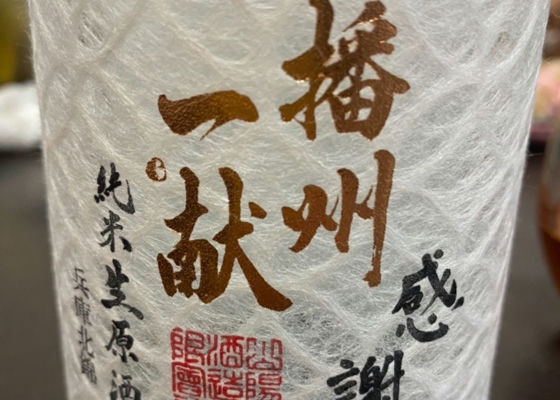 播州
一献
感謝
純米生原酒
兵庫北錦
山陽
酒造